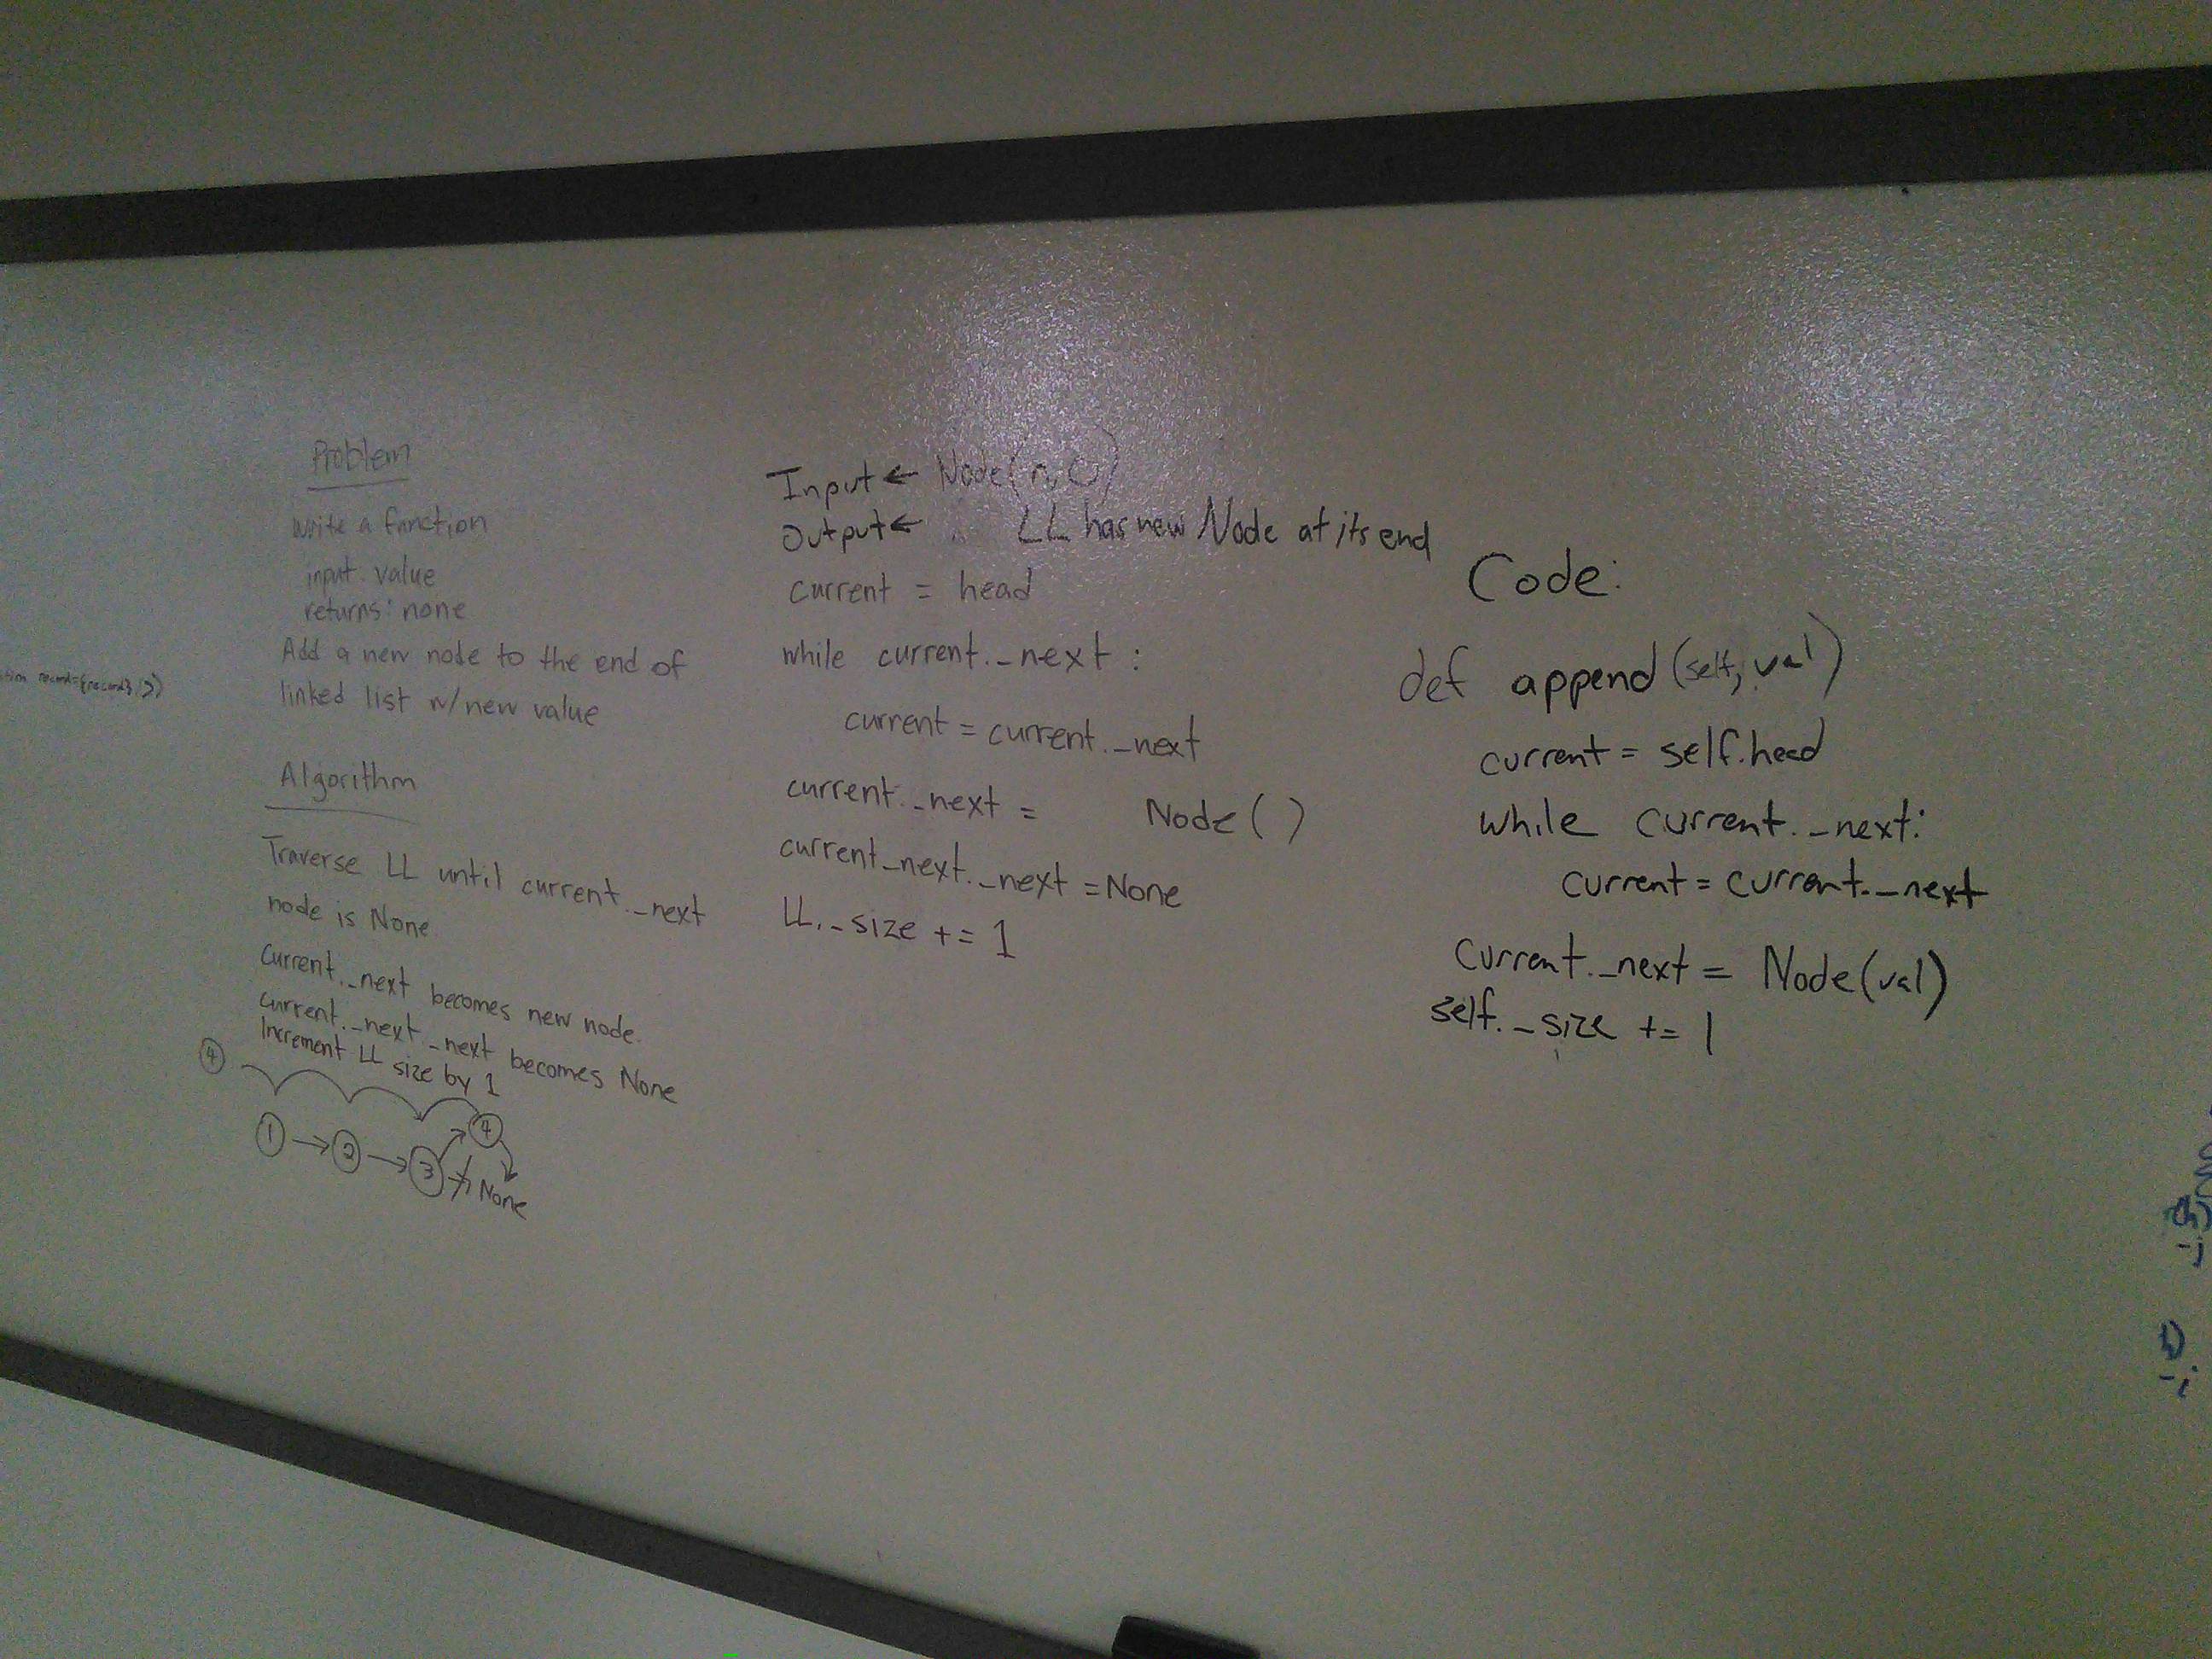 Problem
Write a function
input: value
returns: none
Add a new node to the end of
linked list w/new value
Algorithm
Traverse LL until current._next
node is None
current._next becomes new node.
current._next._next becomes None
Increment LL size by 1
4
1 → 2 → 3 → 4
None
Input ← Node(
Output ← LL has new Node at its end
current = head
while current._next :
current = current._next
current._next = Node ( )
current_next._next = None
LL._size += 1
Code:
def append (self, val)
current = self.head
while current._next:
current = current._next
current._next = Node(val)
self._size += 1